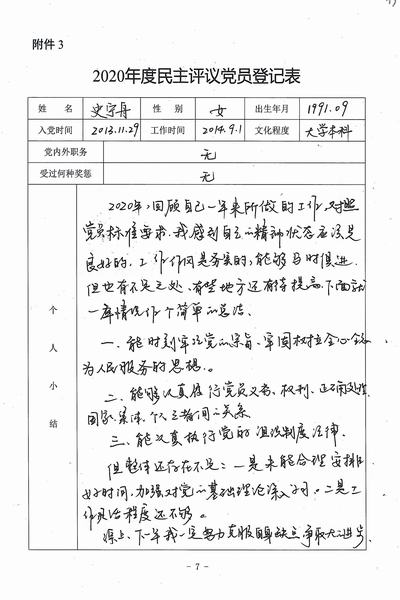 附件 3
2020年度民主评议党员登记表
姓 名 史字丹 性 别 女 出生年月 1991.09
入党时间 2013.11.29 工作时间 2014.9.1 文化程度 大学本科
党内外职务 无
受过何种奖惩 无
个人小结
2020年，回顾自己一年来所做的工作，对照
党员标准要求，我感到自己的精神状态应该是
良好的，工作作风是务实的，能够与时俱进，
但也有不足之处，有些地方还有待提高，下面就
一年情况作个简单的总结。
一、能时刻牢记党的宗旨、牢固树立全心全意
为人民服务的思想。
二、能够认真履行党员义务、权利，正确处理
国家、集体、个人三者间的关系
三、能认真执行党的组织制度法律。
但整体还存在不足：一是未能合理安排
好时间，加强对党的基础理论深入学习。二是工
作灵活程度还不够。
综上，下一年我一定努力克服自身缺点争取大的进步
- 7 -